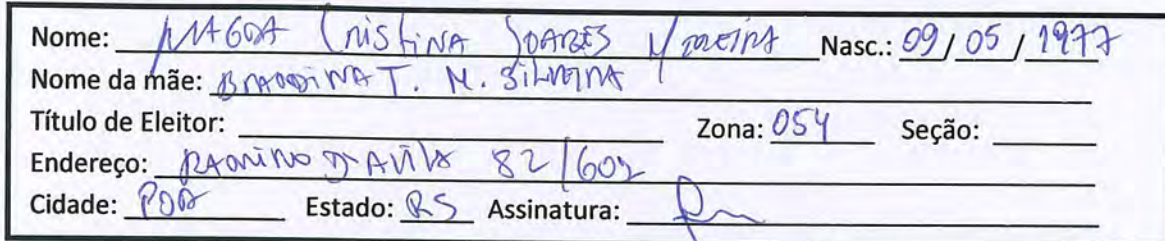 Nome: MAGDA CRISTINA SOARES MOREIRA Nasc.: 09/05/1977
Nome da mãe: T. M. SILVEIRA
Título de Eleitor: Zona: 054 Seção:
Endereço: RAMIRO D'AVILA 82/602
Cidade: POA Estado: RS Assinatura: